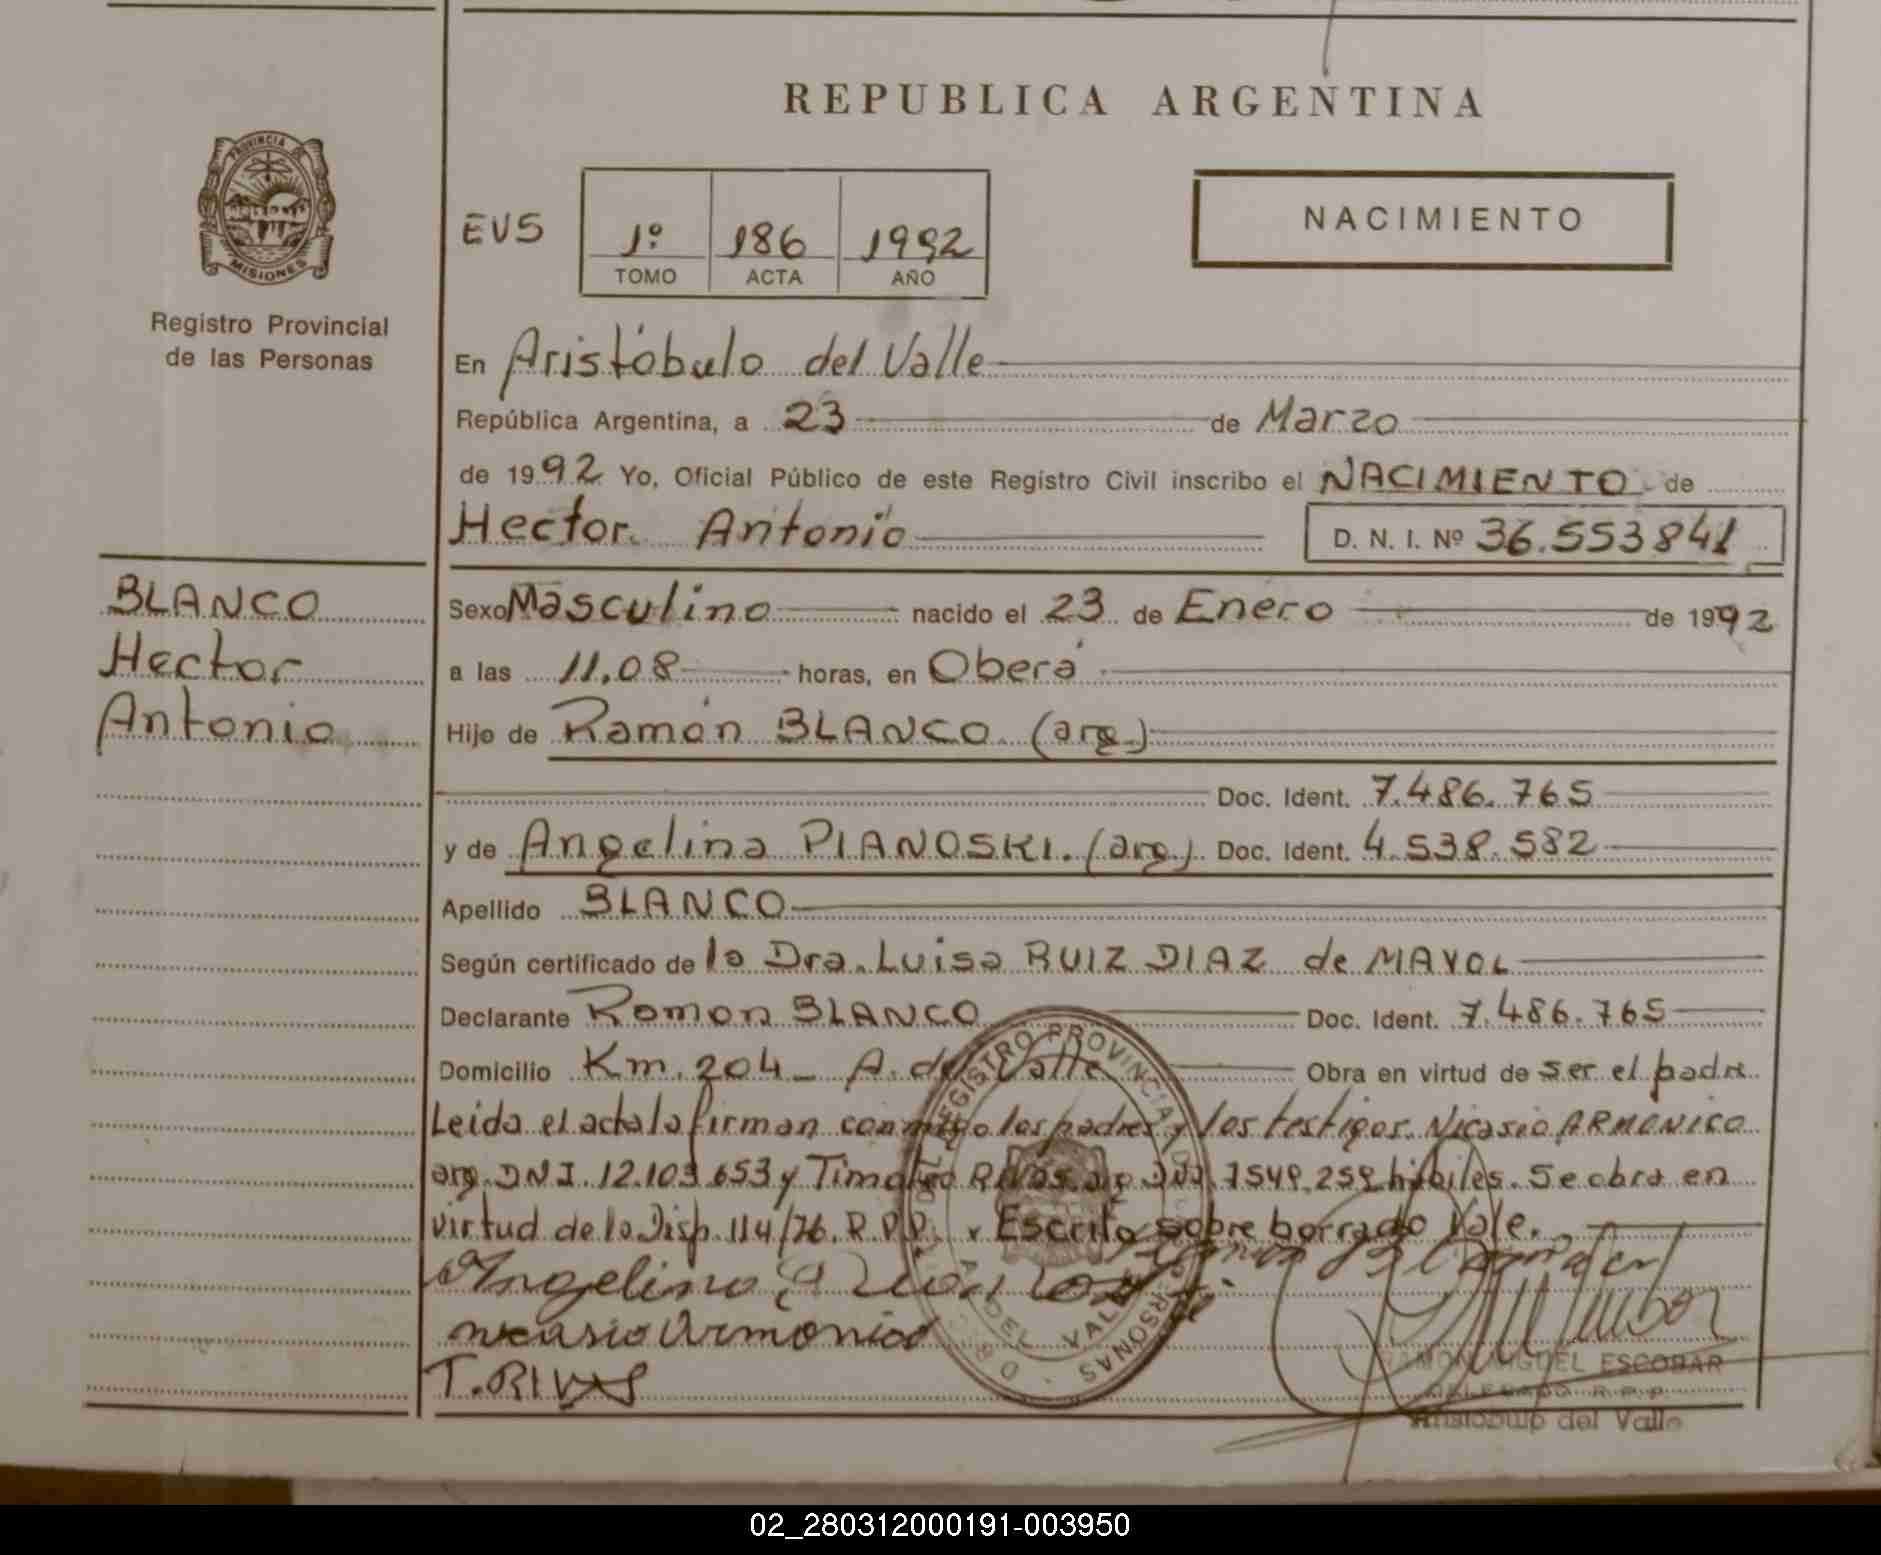 REPUBLICA ARGENTINA
PROVINCIA DE
MISIONES
Registro Provincial
de las Personas
EVS
1º 186 1992
TOMO ACTA AÑO
NACIMIENTO
En Aristóbulo del Valle
República Argentina, a 23 de Marzo
de 1992 Yo, Oficial Público de este Registro Civil inscribo el NACIMIENTO de
Hector Antonio
D. N. I. Nº 36.553841
BLANCO
Hector
Antonio
Sexo Masculino nacido el 23 de Enero de 1992
a las 11,08 horas, en Oberá
Hijo de Ramón BLANCO (arg.)
Doc. Ident. 7.486.765
y de Angelina PIANOSKI. (arg.) Doc. Ident. 4.538.582
Apellido BLANCO
Según certificado de la Dra. Luisa RUIZ DIAZ de MAYOL
Declarante Ramon BLANCO Doc. Ident. 7.486.765
Domicilio Km. 204 - A. del Valle Obra en virtud de ser el padre
Leida el acta la firman conmigo los padres y los testigos. Nicasio ARMONICO
arg. DNI. 12.103.653 y RIVAS arg DNI. 7549.259 hábiles. Se obra en
virtud de la Disp. 114/76. R.P.P. Escrito sobre borrado Vale.
Angelina
nicasio Armonico
T. RIVAS
REGISTRO PROVINCIAL DE LAS PERSONAS
DEL VALLE
RAMON MIGUEL ESCOBAR
DELEGADO R.P.P.
Aristóbulo del Valle
02_280312000191-003950